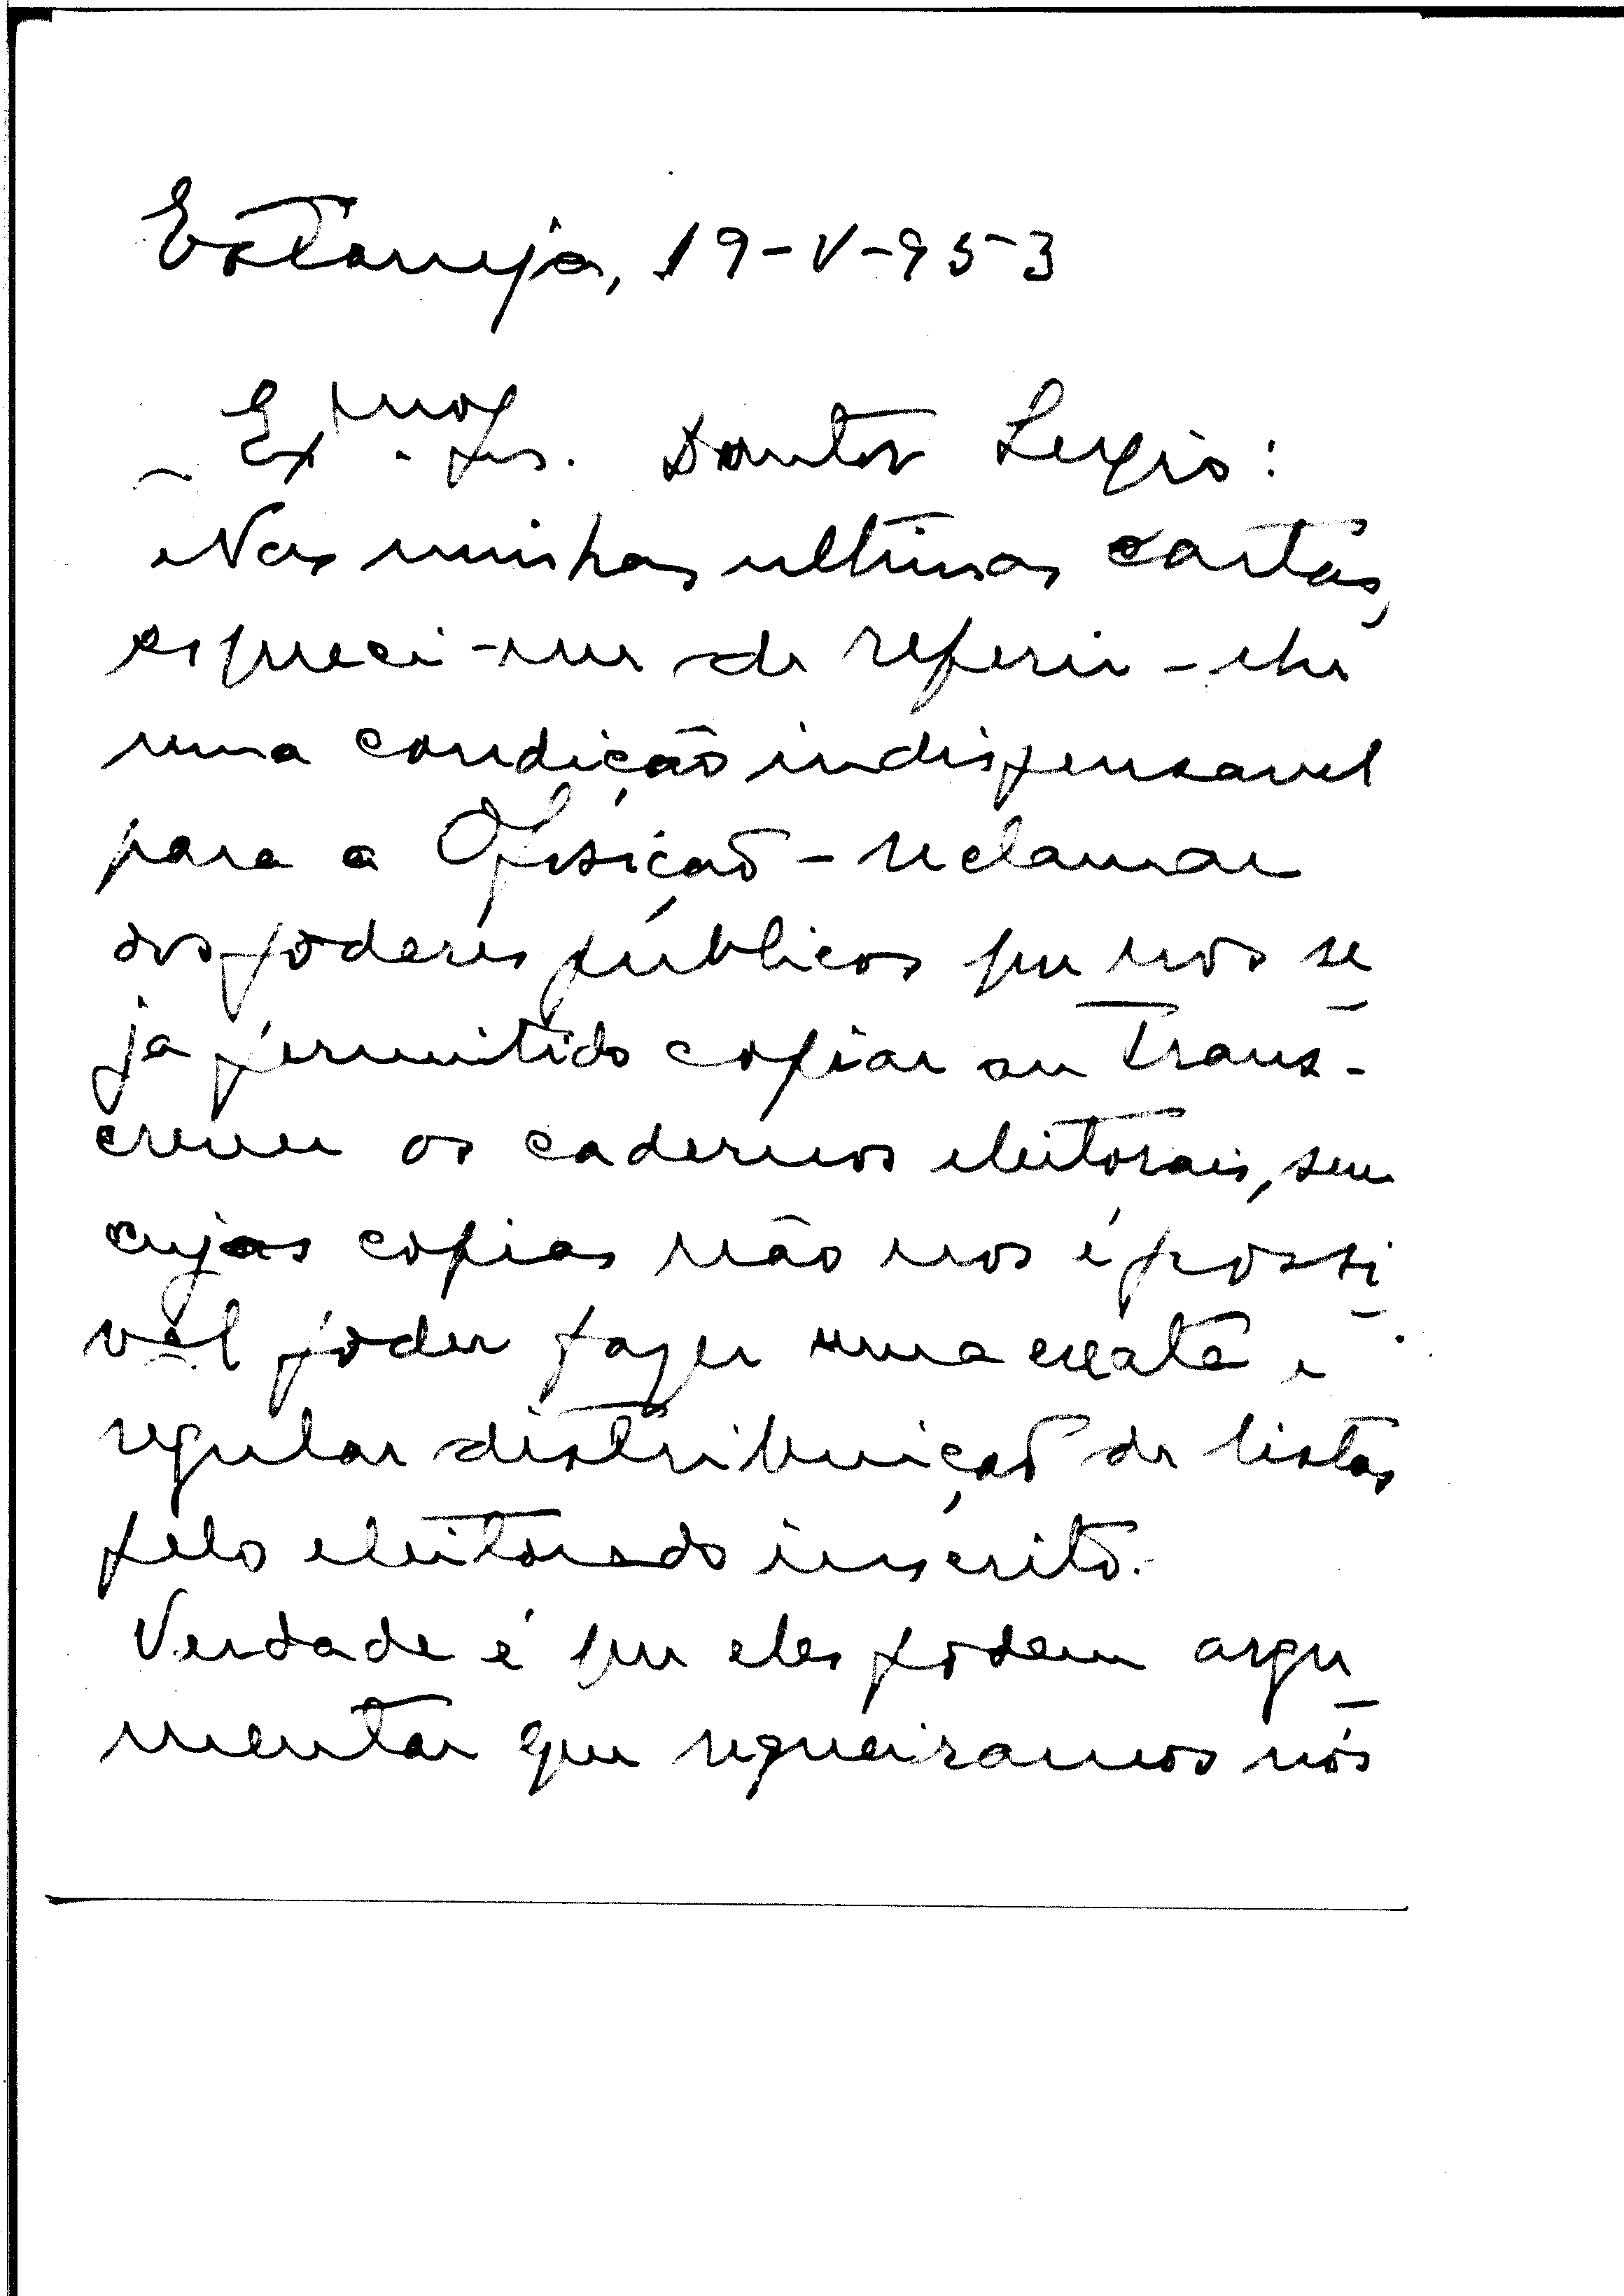 Estarreja, 19-V-953
Ex.mo Sr. Doutor Sergio:
Nas minhas ultimas cartas,
esqueci-me de referir-lhe
uma condição indispensavel
para a Oposição - reclamar
dos poderes públicos que nos se
ja permitido copiar ou trans-
crever os cadernos eleitorais, sem
cujas copias não nos é possi
vel poder fazer uma exata e
regular distribuição de listas
pelo eleitorado inscrito.
Verdade é que eles podem argu
mentar que requeiramos nós